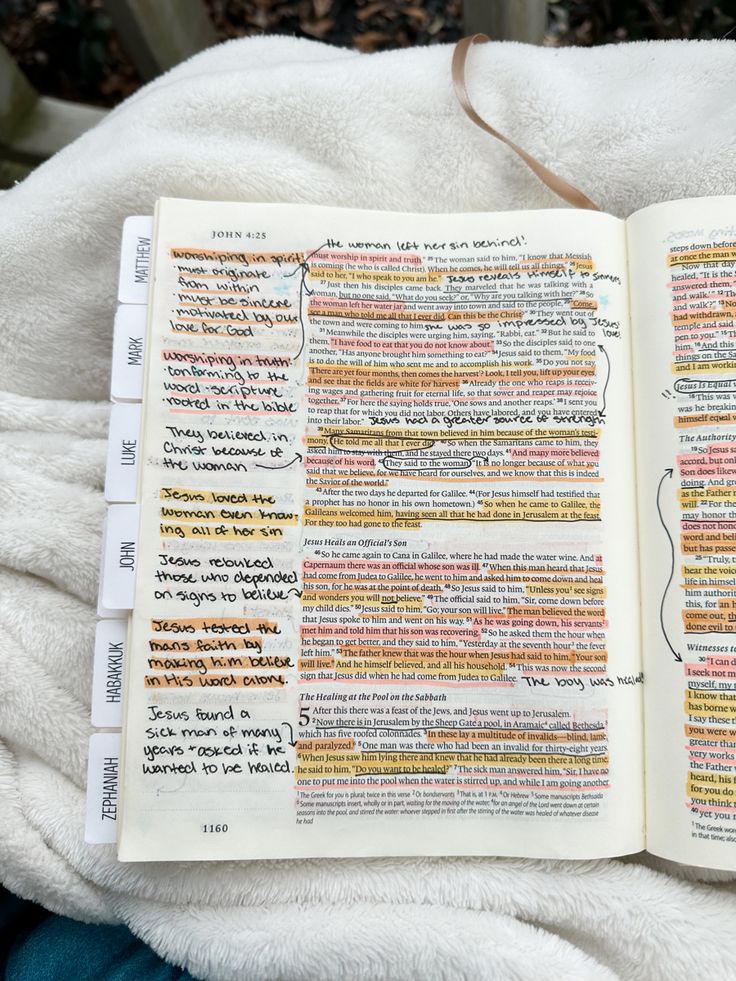 JOHN 4:25
the woman left her sin behind!
worshiping in spirit
· must originate
from within
· must be sincere
· motivated by our
love for God
worshiping in truth
· conforming to the
word-scripture
· rooted in the bible
They believed in
Christ because of
the woman
Jesus loved the
woman even know-
ing all of her sin
Jesus rebuked
those who depended
on signs to believe
Jesus tested the
mans faith by
making him believe
in His word alone.
Jesus found a
sick man of many
years + asked if he
wanted to be healed.
must worship in spirit and truth." 25 The woman said to him, "I know that Messiah
is coming (he who is called Christ). When he comes, he will tell us all things." 26 Jesus
said to her, "I who speak to you am he." Jesus reveals Himself to sinners
27 Just then his disciples came back. They marveled that he was talking with a
woman, but no one said, "What do you seek?" or, "Why are you talking with her?" 28 So
the woman left her water jar and went away into town and said to the people, 29 "Come,
see a man who told me all that I ever did. Can this be the Christ?" 30 They went out of
the town and were coming to him. she was so impressed by Jesus' love!
31 Meanwhile the disciples were urging him, saying, "Rabbi, eat." 32 But he said to
them, "I have food to eat that you do not know about." 33 So the disciples said to one
another, "Has anyone brought him something to eat?" 34 Jesus said to them, "My food
is to do the will of him who sent me and to accomplish his work. 35 Do you not say,
'There are yet four months, then comes the harvest'? Look, I tell you, lift up your eyes,
and see that the fields are white for harvest. 36 Already the one who reaps is receiv-
ing wages and gathering fruit for eternal life, so that sower and reaper may rejoice
together. 37 For here the saying holds true, 'One sows and another reaps.' 38 I sent you
to reap that for which you did not labor. Others have labored, and you have entered
into their labor." Jesus had a greater source of strength
39 Many Samaritans from that town believed in him because of the woman's testi-
mony, "He told me all that I ever did." 40 So when the Samaritans came to him, they
asked him to stay with them, and he stayed there two days. 41 And many more believed
because of his word. 42 They said to the woman, "It is no longer because of what you
said that we believe, for we have heard for ourselves, and we know that this is indeed
the Savior of the world."
43 After the two days he departed for Galilee. 44 (For Jesus himself had testified that
a prophet has no honor in his own hometown.) 45 So when he came to Galilee, the
Galileans welcomed him, having seen all that he had done in Jerusalem at the feast.
For they too had gone to the feast.
Jesus Heals an Official's Son
46 So he came again to Cana in Galilee, where he had made the water wine. And at
Capernaum there was an official whose son was ill. 47 When this man heard that Jesus
had come from Judea to Galilee, he went to him and asked him to come down and heal
his son, for he was at the point of death. 48 So Jesus said to him, "Unless you see signs
and wonders you will not believe." 49 The official said to him, "Sir, come down before
my child dies." 50 Jesus said to him, "Go; your son will live." The man believed the word
that Jesus spoke to him and went on his way. 51 As he was going down, his servants
met him and told him that his son was recovering. 52 So he asked them the hour when
he began to get better, and they said to him, "Yesterday at the seventh hour the fever
left him." 53 The father knew that was the hour when Jesus had said to him, "Your son
will live." And he himself believed, and all his household. 54 This was now the second
sign that Jesus did when he had come from Judea to Galilee. The boy was healed
The Healing at the Pool on the Sabbath
5 After this there was a feast of the Jews, and Jesus went up to Jerusalem.
2 Now there is in Jerusalem by the Sheep Gate a pool, in Aramaic called Bethesda,
which has five roofed colonnades. 3 In these lay a multitude of invalids—blind, lame,
and paralyzed. 5 One man was there who had been an invalid for thirty-eight years.
6 When Jesus saw him lying there and knew that he had already been there a long time,
he said to him, "Do you want to be healed?" 7 The sick man answered him, "Sir, I have no
one to put me into the pool when the water is stirred up, and while I am going another
1 The Greek for you is plural; twice in this verse 2 Or bondservants 3 That is, at 1 P.M. 4 Or Hebrew 5 Some manuscripts Bethsaida
6 Some manuscripts insert, wholly or in part, waiting for the moving of the water; 4 for an angel of the Lord went down at certain
seasons into the pool, and stirred the water: whoever stepped in first after the stirring of the water was healed of whatever disease
he had
1160
MATTHEW
MARK
LUKE
JOHN
HABAKKUK
ZEPHANIAH
steps down before
at once the man w
Now that day
healed, "It is the
answered them, "
and walk.'" 12 Th
and walk'?" 13 No
had withdrawn, a
temple and said t
pen to you." 15 T
him. 16 And this
things on the Sa
and I am workin
Jesus Is Equal
!! 18 This was
he was breakin
himself equal w
The Authority
19 So Jesus sa
accord, but onl
Son does likew
doing. And gre
as the Father r
will. 22 For the
may honor th
does not hono
word and beli
but has passe
25 "Truly, t
hear the voic
life in himsel
him authorit
this, for an h
come out, th
done evil to
Witnesses to
30 "I can d
I seek not m
myself, my
that he
I know that
has borne w
I say these t
you were w
greater than
very works
the Father
heard, his f
for you do
you think
40 yet you
1 The Greek wor
in that time; als